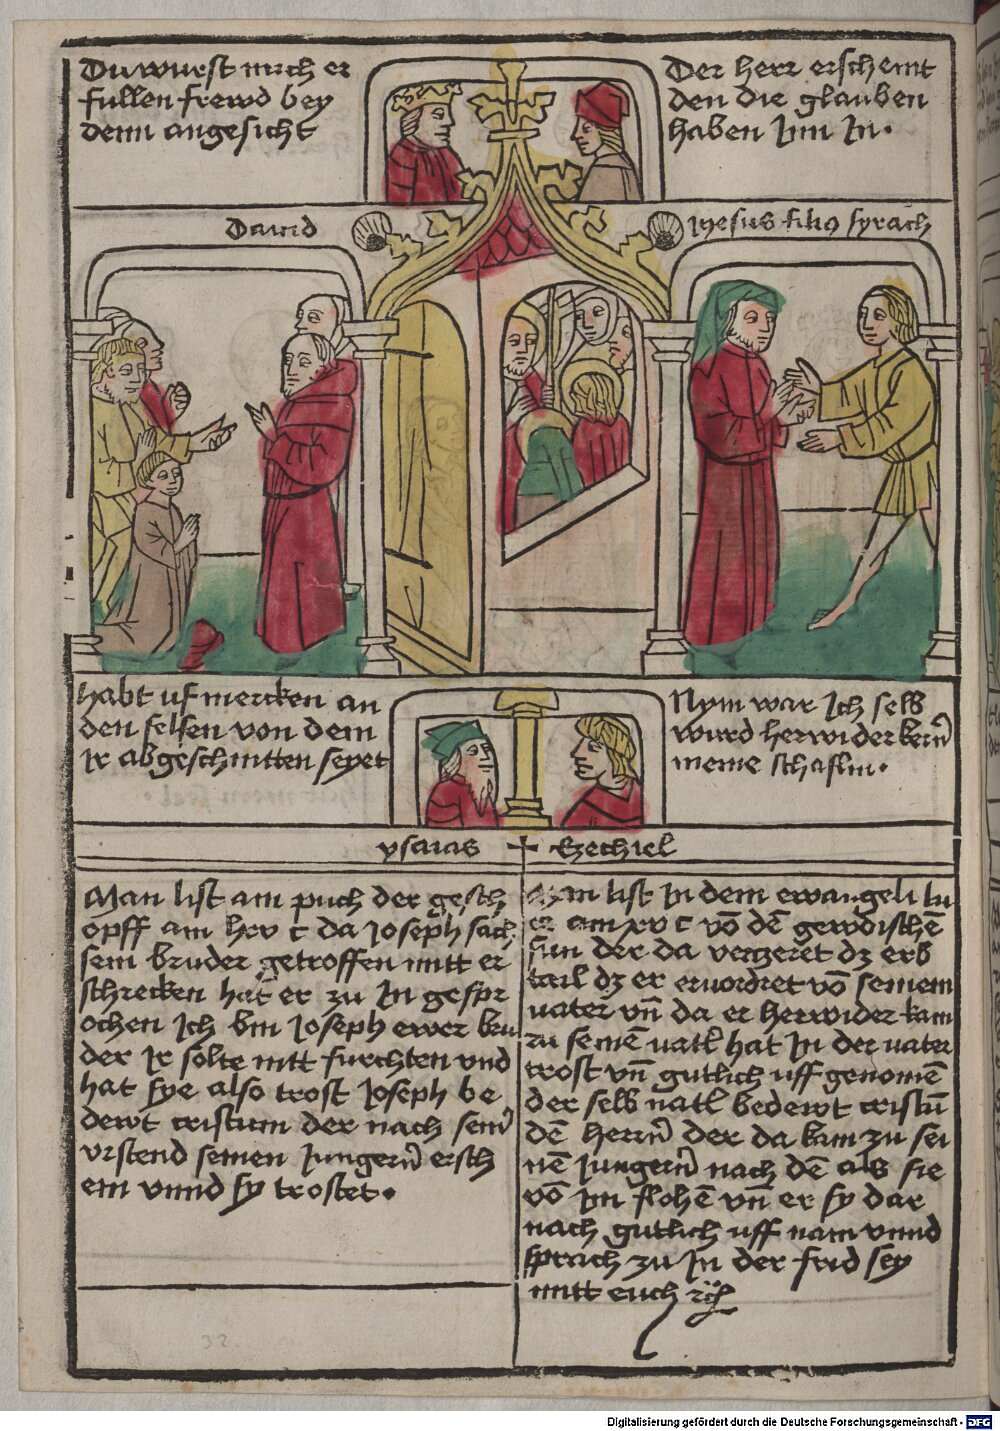 Du wurst mich er
fullen frewd bey
deim angesicht
Der herr erscheint
den die glauben
haben Inn In.
Dauid
ihesus filiꝰ syrach
habt uf mercken an
den felsen von dem
Ir abgeschnitten seyet
Nym war Ich selb
wurd herwider kern̄
meine schaflin.
ysaias
Ezechiel
Man list am puch der gesch
opff am hxv c da Joseph sach
sein bruder getroffen mitt er
schrecken hat er zu In gespr
ochen Ich bin Joseph ewer bru
der Ir solte nitt furchten vnd
hat sye also trost Joseph be
dewt cristum der nach sein̄
vrstend seinen Jungern̄ ersch
ein vnnd sy trostet.
Man list In dem ewangeli lu
ce am xv c vō dē gewdischē
sun der da verzeret dz erb
tail dz er eruordret vō seinem
uater vn̄ da er herwider kam
zu seinē vatr̄ hat In der uater
trost vn̄ gutlich uff genomē
der selb vatr̄ bedewt cristū
dē herrn̄ der da kam zu sei
nē Jungern̄ nach dē als sie
vō im flohē vn̄ er sy dar
nach gutlich uff nam vnnd
sprach zu In der frid sey
mitt euch
32
Digitalisierung gefördert durch die Deutsche Forschungsgemeinschaft - DFG